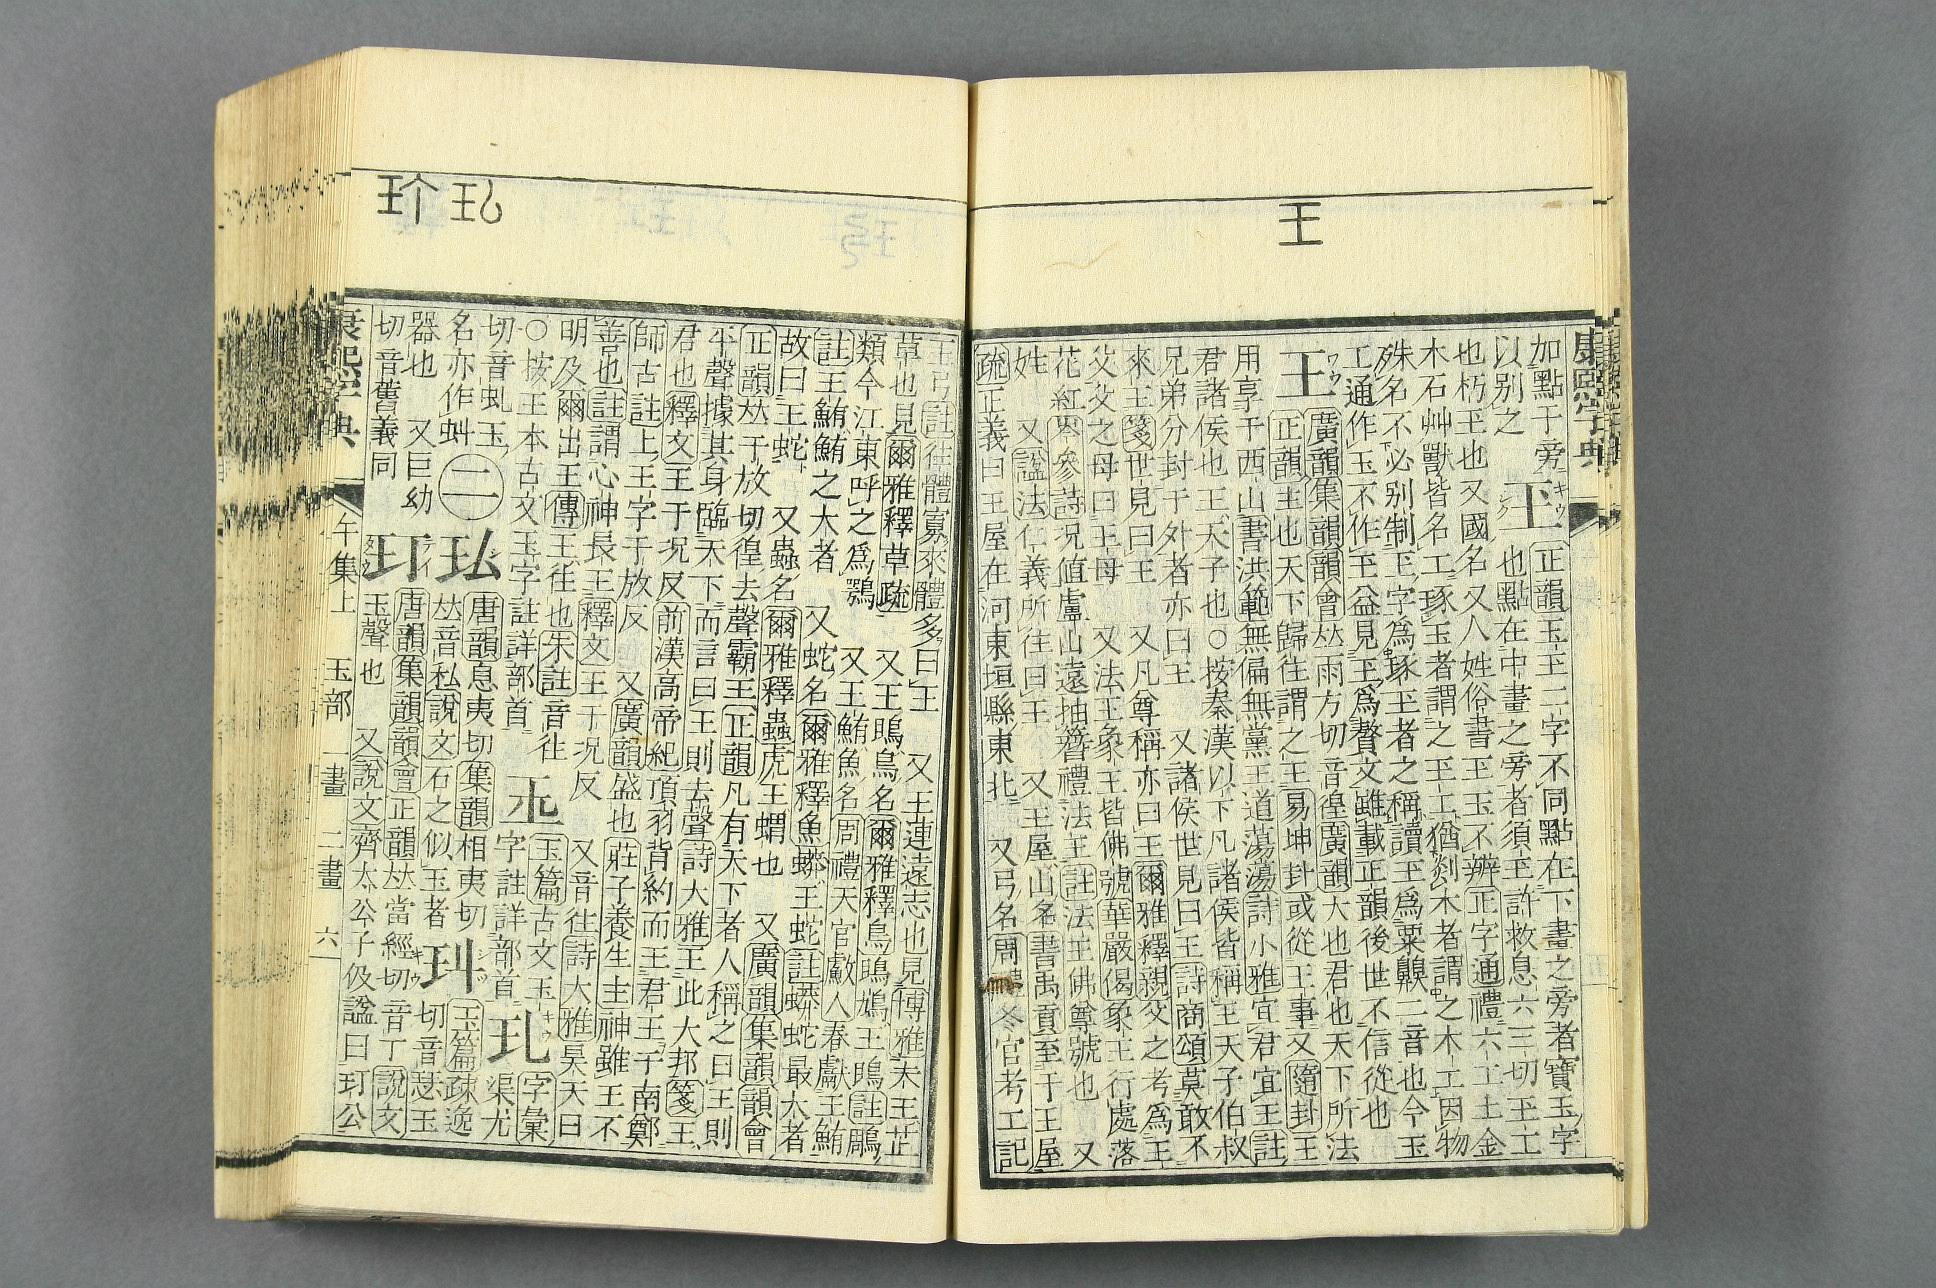 王
加點于旁
以別之
𤣩 正韻玉𤣩二字不同點在下畫之旁者寶玉字
也點在中畫之旁者須𤣩許救息六三切𤣩工
也朽𤣩也又國名又人姓俗書𤣩玉不辨正字通禮六工土金
木石艸獸皆名工琢玉者謂之𤣩工猶剡木者謂之木工因物
殊名不必別制𤣩字爲琢玉者之稱讀𤣩爲粟齅二音也今玉
工通作玉不作𤣩益見𤣩爲贅文雖載正韻後世不信從也
王 廣韻集韻韻會𠀤雨方切音徨廣韻大也君也天下所法
正韻主也天下歸往謂之王易坤卦或從王事又隨卦王
用享于西山書洪範無偏無黨王道蕩蕩詩小雅宜君宜王註
君諸侯也王天子也○按秦漢以下凡諸侯皆稱王天子伯叔
兄弟分封于外者亦曰王 又諸侯世見曰王詩商頌莫敢不
來王箋世見曰王 又凡尊稱亦曰王爾雅釋親父之考爲王
父父之母曰王母 又法王象王皆佛號華嚴偈象王行處落
花紅岑參詩况值廬山遠抽簪禮法王註法王佛尊號也 又
姓 又諡法仁義所往曰王 又王屋山名書禹貢至于王屋
疏正義曰王屋在河東垣縣東北 又弓名周禮冬官考工記
王弓註往體寡來體多曰王 又王連遠志也見博雅 又王芷
草也見爾雅釋草疏 又王鴡鳥名爾雅釋鳥鴡鳩王鴡註鵰
類今江東呼之爲鶚 又王鮪魚名周禮天官䱷人春獻王鮪
註王鮪鮪之大者 又蛇名爾雅釋魚蟒王蛇註蟒蛇最大者
故曰王蛇 又蟲名爾雅釋蟲虎王蝟也 又廣韻集韻韻會
正韻𠀤于放切徨去聲霸王正韻凡有天下者人稱之曰王則
平聲據其身臨天下而言曰王則去聲詩大雅王此大邦箋王
君也釋文王于况反前漢高帝紀項羽背約而王君王于南鄭
師古註上王字于放反 又廣韻盛也莊子養生主神雖王不
善也註謂心神長王釋文王于况反 又音往詩大雅昊天曰
明及爾出王傳王往也朱註音往 𤣪 玉篇古文玉
○按王本古文玉字註詳部首 字註詳部首 玌 字彙渠尤
切音虬玉
名亦作虯 二 玜 唐韻息夷切集韻相夷切
𠀤音私說文石之似玉者 玣 玉篇疎逸切音悉玉
器也 又巨幼
切音舊義同 玎 唐韻集韻韻會正韻𠀤當經切音丁說文
玉聲也 又說文齊太公子伋諡曰玎公
玌
玠
康熙字典
康熙字典
午集上 玉部 一畫 二畫 六